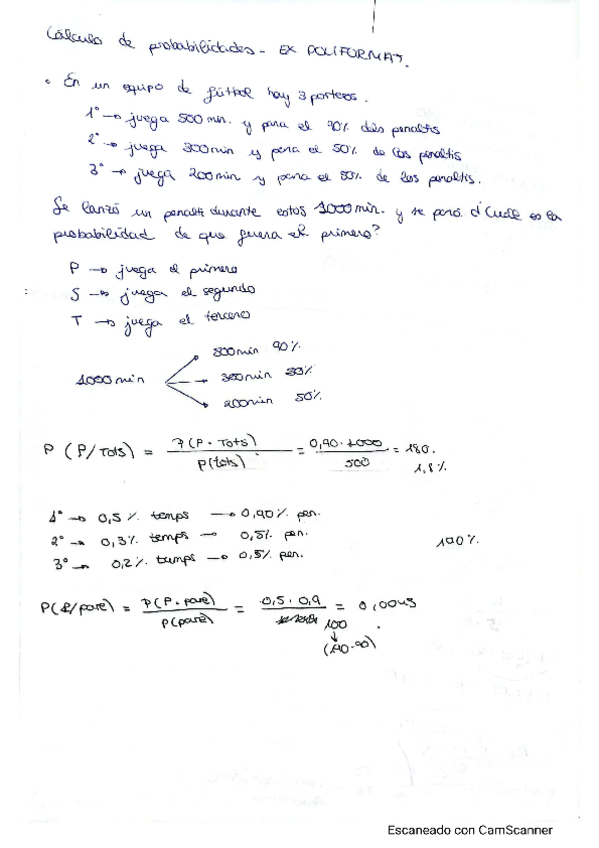 Cálculo de probabilidades - EX POLIFORMAT.
• En un equipo de fútbol hay 3 porteros.
1º → juega 500 min. y para el 90% dels penaltis
2º → juega 300min y para el 50% de los penaltis
3º → juega 200min y para el 80% de los penaltis.
Se lanzó un penalti durante estos 1000 min. y se paró. ¿Cuál es la
probabilidad de que fuera el primero?
P → juega el primero
S → juega el segundo
T → juega el tercero
500min 90%
1000min 300min 80%
200min 50%
P (P/Tots) = P(P · Tots) / P(tots) = 0,90 · 1000 / 500 = 180.
1,8%
1º → 0,5% temps → 0,90% pen.
2º → 0,3% temps → 0,5% pen.
100%
3º → 0,2% temps → 0,5% pen.
P(P/pare) = P(P · pare) / P(pare) = 0,5 · 0,9 / 100 = 0,0045
Escaneado con CamScanner